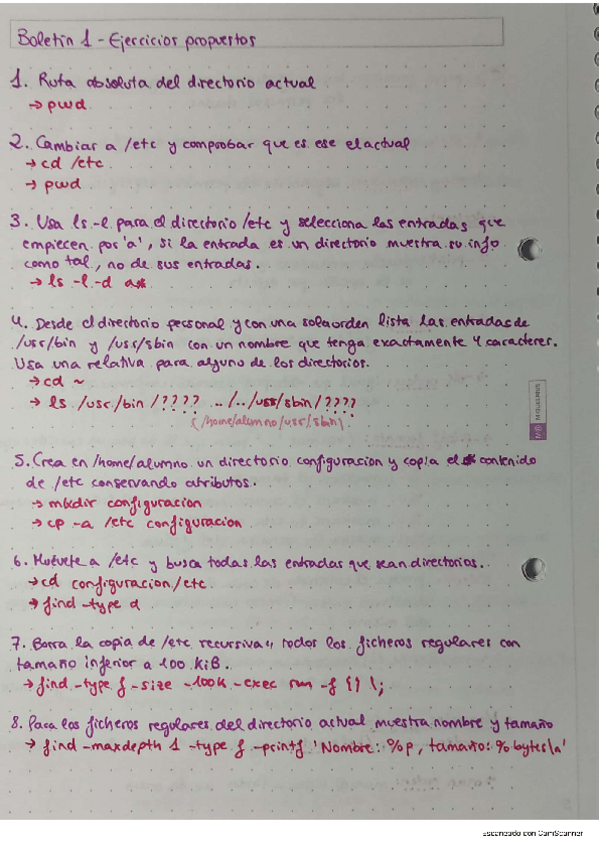 Boletín 1 - Ejercicios propuestos
1. Ruta absoluta del directorio actual
→ pwd
2. Cambiar a /etc y comprobar que es ese el actual
→ cd /etc
→ pwd
3. Usa ls -l para el directorio /etc y selecciona las entradas que
empiecen por 'a', si la entrada es un directorio muestra su info
como tal, no de sus entradas.
→ ls -l -d a*
4. Desde el directorio personal y con una sola orden lista las entradas de
/usr/bin y /usr/sbin con un nombre que tenga exactamente 4 caracteres.
Usa una relativa para alguno de los directorios.
→ cd ~
→ ls /usr/bin/???? ../../usr/sbin/????
(/home/alumno/usr/sbin)
5. Crea en /home/alumno un directorio configuracion y copia el contenido
de /etc conservando atributos.
→ mkdir configuracion
→ cp -a /etc configuracion
6. Muévete a /etc y busca todas las entradas que sean directorios.
→ cd configuracion/etc
→ find -type d
7. Borra la copia de /etc recursiva, todos los ficheros regulares con
tamaño inferior a 100 KiB.
→ find -type f -size -100k -exec rm -f {} \;
8. Para los ficheros regulares del directorio actual muestra nombre y tamaño
→ find -maxdepth 1 -type f -printf 'Nombre: %p, tamaño: % bytes\n'
MIQUELRIUS
Escaneado con CamScanner